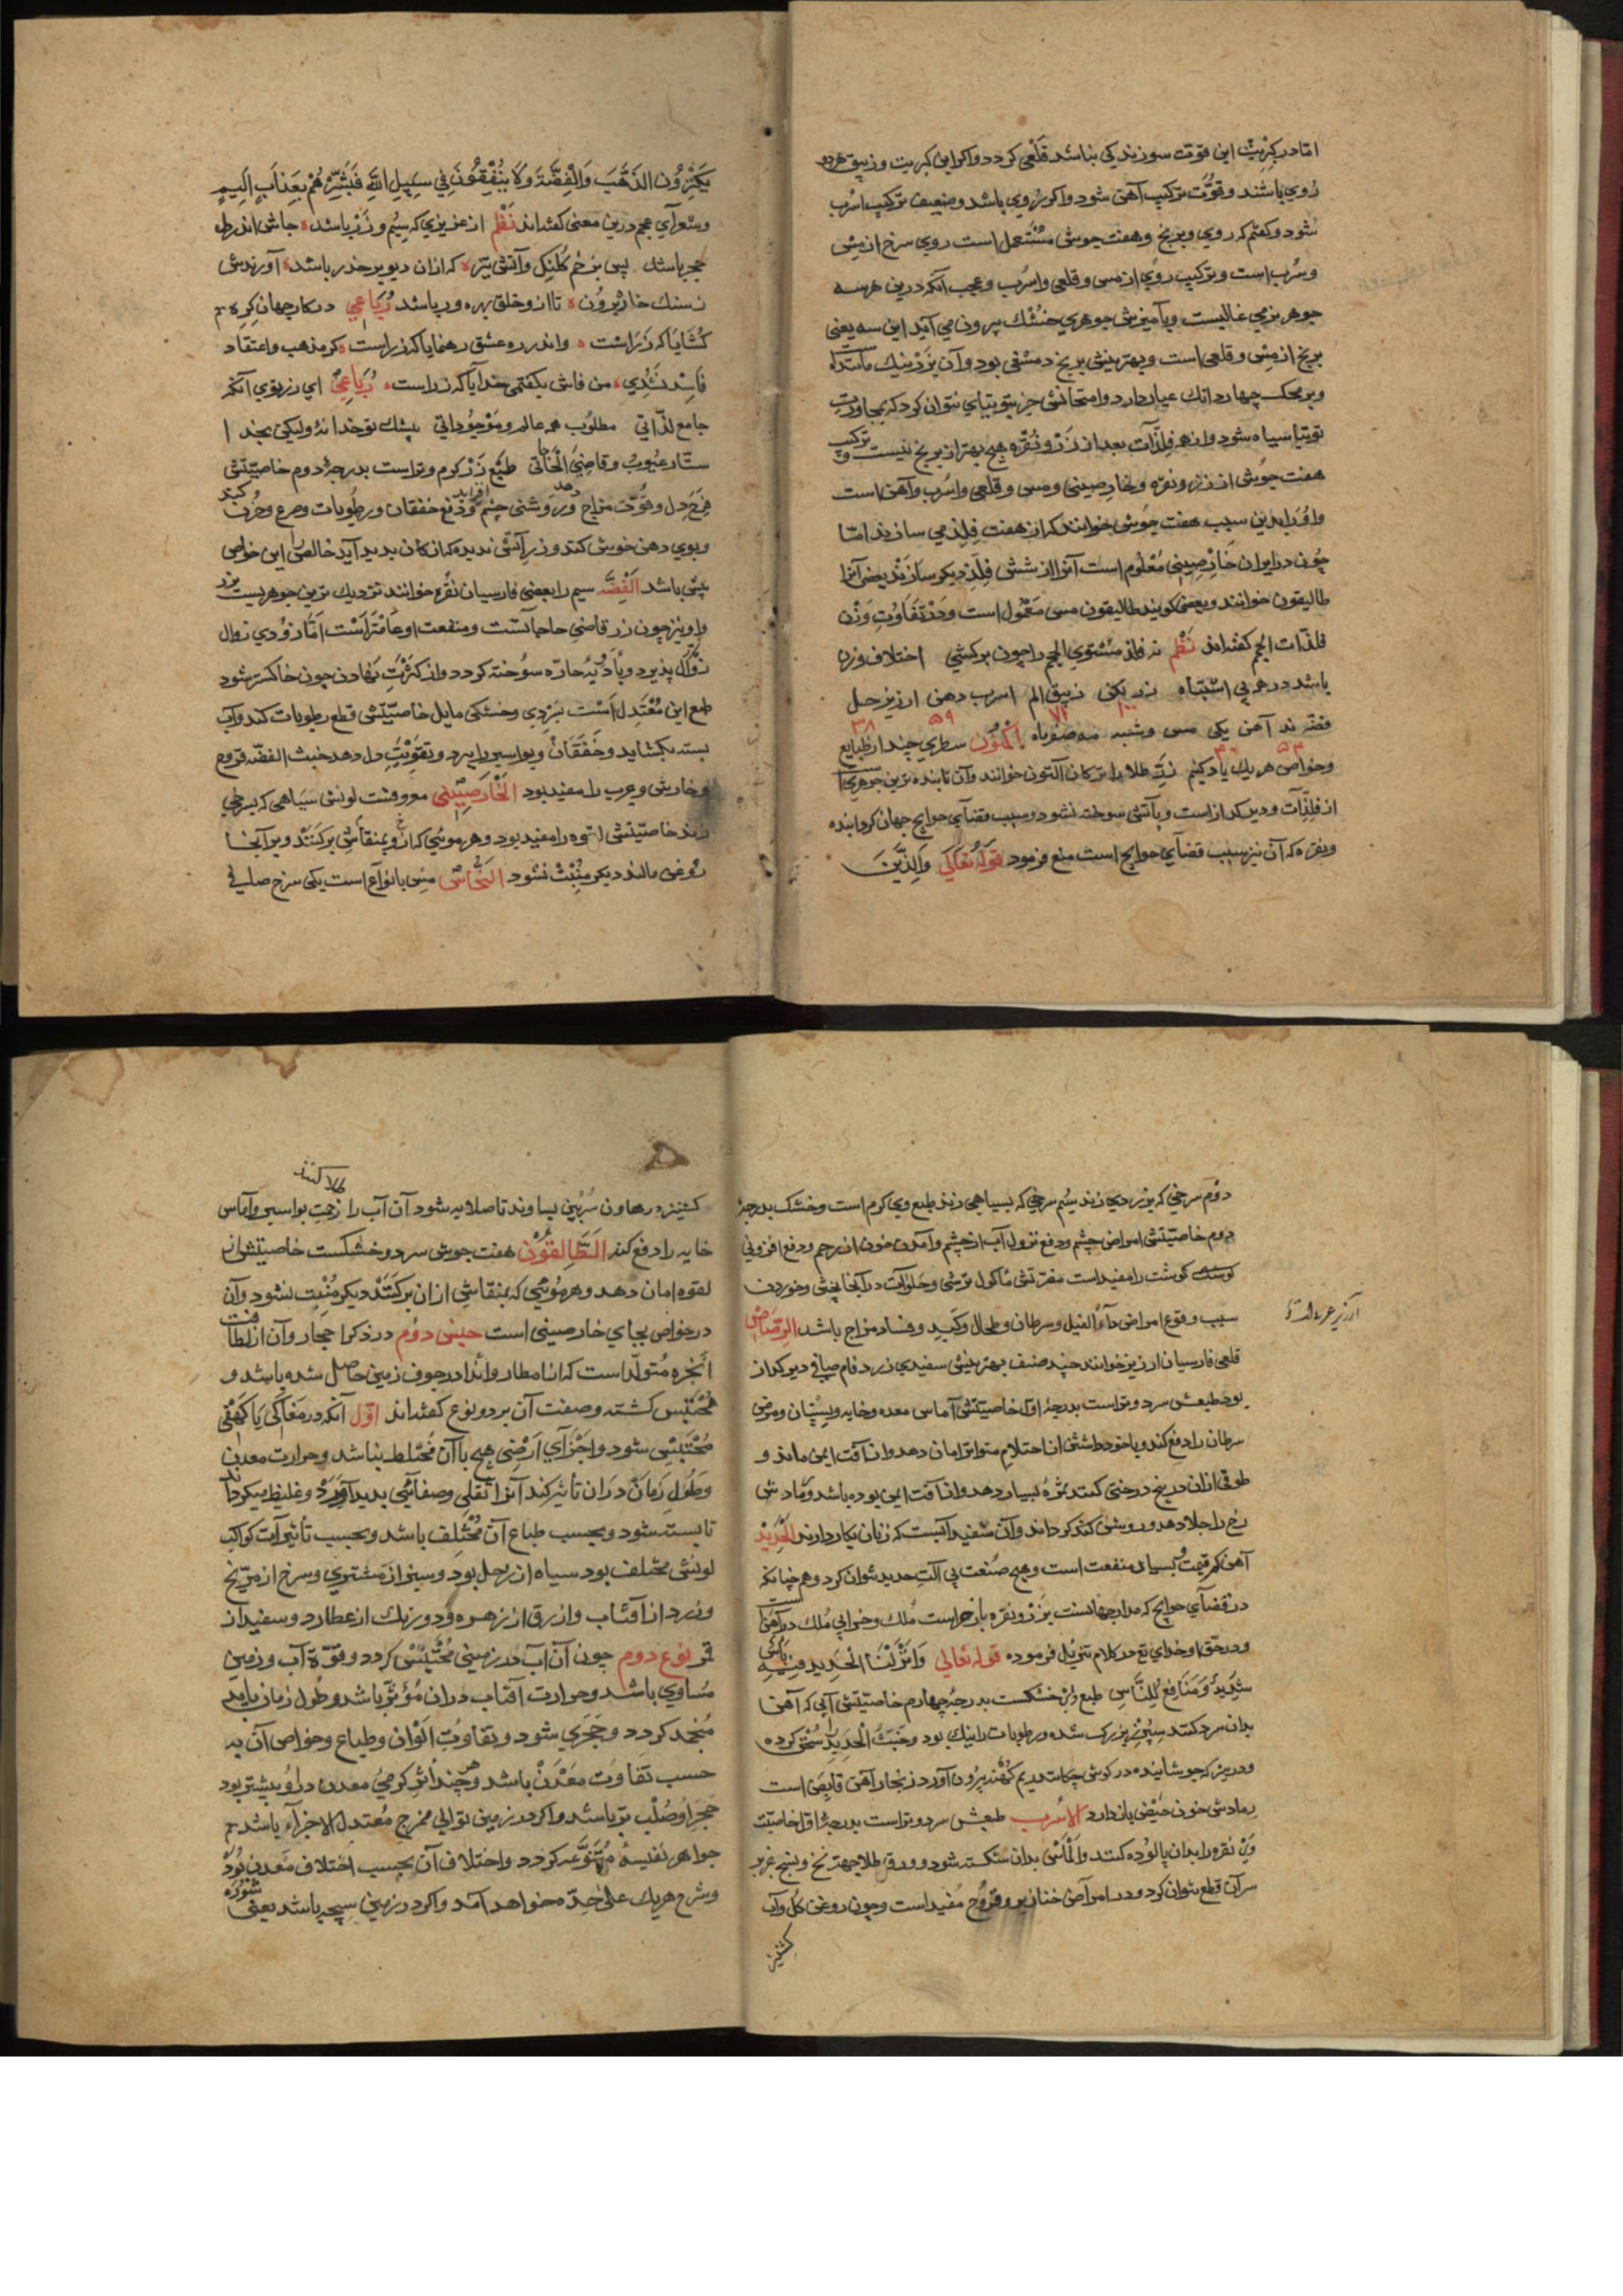 امّا در کبریت این قوّت سوزندگی نباشد قلعی کردد واکر این کبریت وزیبق هردو
رُوی باشند وقوّت ترکیب آهن شود واکر رُوی باشد وضعیف ترکیب اسرب
شود وکفتم که روی وبرنج وهفت جوش مستعمل است روی سرخ از مس
وسُرب است وترکیب رُوی از مس وقلعی واسُرب وعجب آنکه درین هرسه
جوهر نرمی غالبست وبآمیزش جوهری خشک بیرون می آید این سه یعنی
برنج از مس وقلعی است وبهترینش برنج دمشقی بود وآن بزر نیک مانَنده است
وبر محک چهار دانک عیار دارد وامتحانش جز بتوتیای نتوان کرد که بمجاورت
توتیا سیاه شود واز همه فلزّات بعد از زر ونُقره هیچ بهتر از برنج نیست وترکیب
هفت جُوش از زر ونقره وخارصینی ومس وقلعی واسُرب وآهن است
واورا بدین سبب هفت جُوش خوانند که از هفت فلز می سازند امّا
چُون در ایران خارصینی مَعْلُوم است آنرا از شش فلز دیکر سازند بعضی آنرا
طالیقون خوانند وبعضی کویند طالیقون مس مَعْمُول است ودَرْ تَفَاوُتِ وَزْن
فلذّات الجم کفته‌اند نَظْم نه فلز مستوی الحجم را چون برکشی اختلاف وزن
باشد در هر یی اشتباه زر لکن زیبق الم اسرب دهن ارزیز حل
فضّه ند آهن یکی مس وشبه مه صفر ماه اکنُون سطری چند از طبایع
۱۰۰ ۷۱ ۵۹ ۳۸
وخواص هریک یاد کنیم زَرّ طلا را ترکان آلتون خوانند وآن تابنده ترین جوهری است
۵۴ ۴۰
از فلزّات ودیر کداز است وبآتش سوخته نشود وسبب قضآی حوایج جهان کردانیده
ونقره که آن نیز سبب قضآی حوایج است منع فرمود قَولُهُ تَعَالَی وَالَّذِیْنَ
یَکْنِزُون الذَّهَبَ وَالْفِضَّةَ وَلَا یُنْفِقُونَهَا فِی سَبِیلِ اللهِ فَبَشِّرْهُمْ بِعَذَابٍ اَلِیمٍ
وشعرآی عجم درین معنی کفته‌اند نَظْم از عزیزی که سِیْم وزَرّ باشد جاش اندر دل
حجر باشد پس بزخم کُلَنک وآتش تیز که ازان دیو بر حذر باشد آورندش
ز سنک خاره بُرون تا ازو خلق بهره ور باشد رُبَاعِی در کار جهان کره
کُشَایاکه زَراست واندر ره عشق رهنمایاکه زراست کر مذهب واعتقاد
فَاسِد نَشُدِی من فاش بکفتمی خدایا که زراست رُبَاعِی ای زر تویی آنکه
جامع لذّاتی مطلُوب همه عالم ومَوْجُوداتی بیشک تو خدا نه ولیکن بخدا
ستّار عیُوب وقاضِیُ الحَاجَاتی طبع زَرْ کرم وتراست بدرجۀ دوم خاصیّتش
فَرَح دل وقُوّت مزاج دهد ورَوشنی چشم افزاید ودفع خفقان ورطوبات وصرع وحُزن کند
وبوی دهن خوش کند وزر آتش ندیده که از کان بدید آید خالص را این خواص
بیش باشد الفِضَّه سیم را بعضی فارسیان نقره خوانند نزدیک ترین جوهریست بزر
واونیز چون زر قاضی حاجاتست ومنفعت او عَامْتَراَسْت امَّا زوُدی زوال
زوآل پذیرد وبأَدْویۀ حادّه سوُخته کردد واز کثرتِ نهادن چون خاکستر شود
طبع این مُعْتَدِل اَسْت بسَردی وخشکی مایل خاصیّتش قطع رطوبات کند وآب
بسته بکشاید وخَفَقَانْ وبواسیر را ببرد وتقویّتِ دل دهد خبث الفضّه قروح
وخارش وجرب را مفید بود الْخَارْصِیْنِی معروفست لونش سیاهی که بسرخی
زند خاصیّتش لقوه را مفید بود وهر موئی که ازو بمنقاشِ برکنند وبر آنجا
روغن مالند دیکر مُنْبِتْ نشود النُّحَاسُ مس بانواع است یکی سرخ صلب
دوّم سرخی که بزردی زند سیُم سرخی که بسیاهی زند طبع وی کرم است وخشک بدرجۀ
دوم خاصیّتش امراض چشم ودفع نزول آب از چشم وآمدن خون از رحم ودفع افزونی
کوشت را مفید است مضرتش مأکول ترشی وحَلَوَات در آنجا پختن وخوردن
سبب وقوع امراض دآء الفیل وسرطان وطحال وکَبِد وفساد مزاج باشد الرَّصَاصُ
قلعی فارسیان ارزیز خوانند چند صنف بهترینش سفیدی زرد فام صافی دیر کداز
بود طبعش سرد وتراست بدرجۀ اوّل خاصیّتش آماس معده وخایه وپِسْتَان ومرض
سرطان را دفع کند وباخود داشتن از احتلام متواتر امان دهد واز آفت ایمن ماند و
طوقی ازان در بیخ درختی کنند ثمرَه بسیار دهد واز آفت ایمن بوده باشد ورَمادش
رخ را جلا دهد وروشن کند کرداند وآن سفید آبست که زنان بکار دارند الحَدِیْد
آهن کم قیمت وبسیار منفعت است وهیچ صُنعت بی آلتِ حدید نتوان کرد وهم چنانکه
در قضآی حوایج که مدار جهانست بزَرْ ونقره باز خواست مُلک وخرابی مُلک در آهن است
ودر حقّ او خدای تع در کلام تنزیل فرموده قوله تعالی وَاَنْزَلْنَا الْحَدِید فِیْهِ بَأْسٌ
شَدِیْدٌ وَمَنَافِعُ لِلنَّاسِ طبع وی خشکست بدرجۀ چهارم خاصیّتش آبی که آهن
بدان سرد کنند سپُرْزِ بزرک شده ورطوبات را نیک بود وخَبَثُ الْحَدِیْدِ را سُحْق کرده
ودر سرکه جوشانیده در کوش چکانند ریم کُهنْه بیرُون آورد زنجار آهن قابِض است
رمادش خون حَیْض باز دارد الاُسْرُب طبعش سرد وتراست بدرجۀ اوّل خاصیّت
وی نقره را بدان پالُوده کنند والْمَاس بدان شکسته شود وورق طلا
سرآن قطع نتوان کرد ودر امراض خنازیر وقُرُوح مُفید است وچون روغن کُل وآب
کشنیز
کشنیز در هاون سُرْبین بساوند تا صلایه شود آن آب را طلا کنند زحمتِ بواسیر وآماس
خایه را دفع کند الَطَّالِقُوْن هفت جوش سرد وخشکست خاصیّتش از
لقوه امان دهد وهر مُوئی که بمنقاشِ ازان برکَنَنْد دیکر مُنْبِت نشود وآن
در خواص بجای خارصینی است جنس دوُم در ذکر احجار وآن از لطافت
اَبْخِره مُتولّد است که از امطار وأندا در جوف زمین حاصل شده باشد و
مُحْتَبِس کشته وصفت آن بردو نوع کفته‌اند اوّل آنکه در مَغَاکی یَا کَهْفی
مُحْتَبِس شود واَجْزَآیِ اَرْضِی هیچ باآن مُخْتلط نباشد وحرارت معدن
وَطُولِ زَمَانْ دَران تأثیر کند آنرا ثقلی وصفآئی بدید آوَرَدْ وغلیظ میکرداند
تا بسته شود وبحسب طباع آن مُخْتَلِف باشد وبحسب تأثیرآت کواکب
لونش مختلف بود سیاه از زحل بود وسبز از مشتری وسرخ از مرّیخ
وزرد از آفتاب وازرق از زهره ودورنک از عطارد وسفید از
قمر نوع دوم چون آن آب در زمین مُحْتَبَسْ کردد وقوّۀ آب وزمین
مُساوِی باشد وحرارت آفتاب دران مُؤثر باشد وطُول زمان بیابد
مُنجمد کردد وحَجَرِی شود وبتفاوُت اَلْوَان وطباع وخواص آن به
حسب تفاوُت مَعْدَن باشد وهر چند اثر کرمیُ معدن دراُو بیشتر بود
حَجَراو صُلْب تر باشد واکر در زمین توالی مخرج مُعتدل الاجزآء باشد
جواهر نفیسه مُتَنَوّعه کردد واختلاف آن بحسب اختلاف مَعدن بُوَد
وشرح هریک علی حِدَه خواهد آمد واکر در زمین سبخه باشد یعنی شُوره